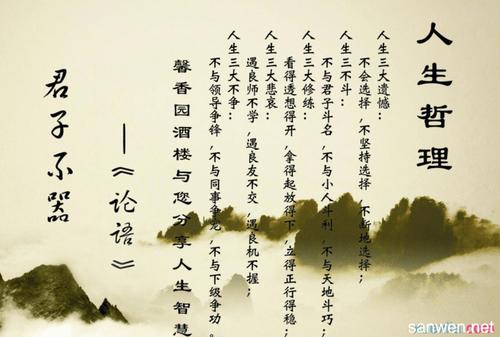 人生哲理
人生三大遗憾：
不会选择，不坚持选择，不断地选择；
人生三不斗：
不与君子斗名，不与小人斗利，不与天地斗巧；
人生三大修练：
看得透想得开，拿得起放得下，立得正行得稳；
人生三大悲哀：
遇良师不学，遇良友不交，遇良机不握；
人生三大不争：
不与领导争锋，不与同事争宠，不与下级争功。
馨香园酒楼与您分享人生智慧
—《论语》
君子不器
sanwen.net